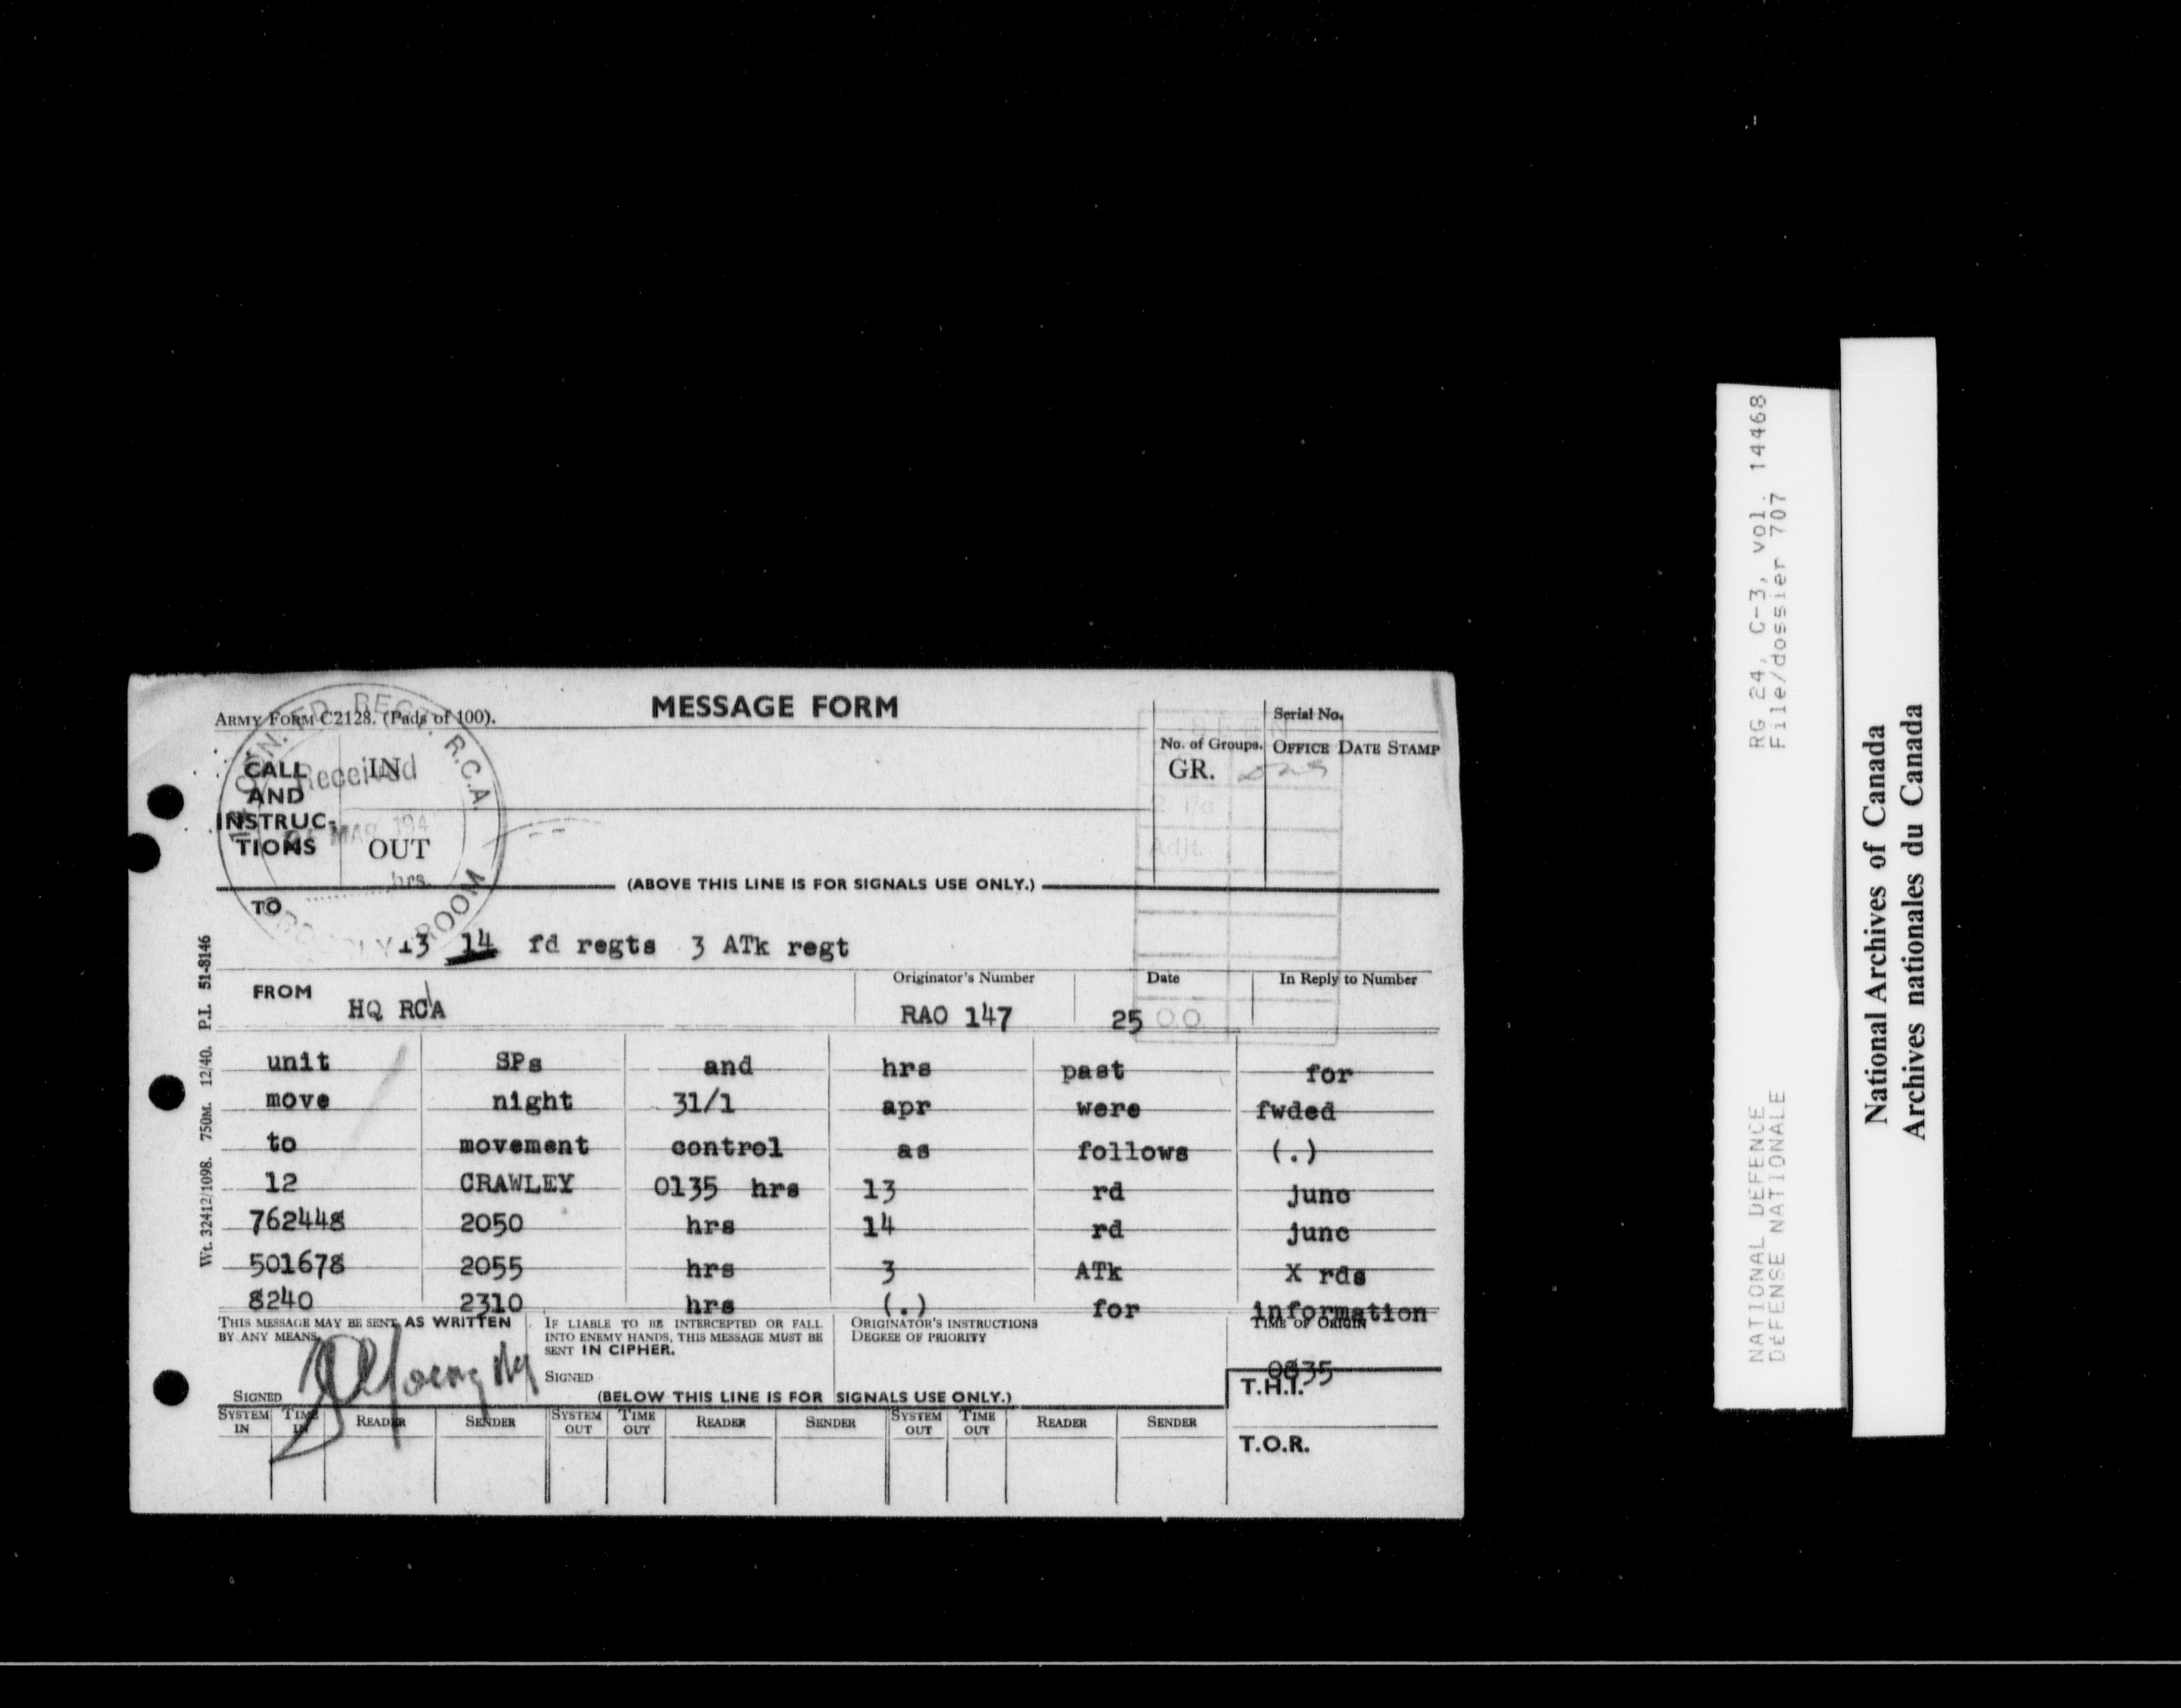 MESSAGE FORM
ARMY FORM C2128. (Pads of 100).
Serial No.
No. of Groups.
GR.
OFFICE DATE STAMP
CALL
AND
INSTRUC-
TIONS
IN
OUT
FD. REGT. R.C.A.
Received
MAR 194
hrs.
ROOM
2 i/c
Adjt.
(ABOVE THIS LINE IS FOR SIGNALS USE ONLY.)
TO
13 14 fd regts 3 ATk regt
FROM
HQ RCA
Originator's Number
RAO 147
Date
25
In Reply to Number
unit SPs and hrs past for
move night 31/1 apr were fwded
to movement control as follows (.)
12 CRAWLEY 0135 hrs 13 rd junc
762448 2050 hrs 14 rd junc
501678 2055 hrs 3 ATk X rds
8240 2310 hrs (.) for information
THIS MESSAGE MAY BE SENT AS WRITTEN
BY ANY MEANS.
SIGNED
IF LIABLE TO BE INTERCEPTED OR FALL
INTO ENEMY HANDS, THIS MESSAGE MUST BE
SENT IN CIPHER.
SIGNED
ORIGINATOR'S INSTRUCTIONS
DEGREE OF PRIORITY
TIME OF ORIGIN
0835
T.H.I.
T.O.R.
(BELOW THIS LINE IS FOR SIGNALS USE ONLY.)
SYSTEM IN TIME IN READER SENDER SYSTEM OUT TIME OUT READER SENDER SYSTEM OUT TIME OUT READER SENDER
Wt. 32412/1098. 750M. 12/40. P.I. 51-8146
NATIONAL DEFENCE RG 24, C-3, vol. 14468
DÉFENSE NATIONALE File/dossier 707
National Archives of Canada
Archives nationales du Canada